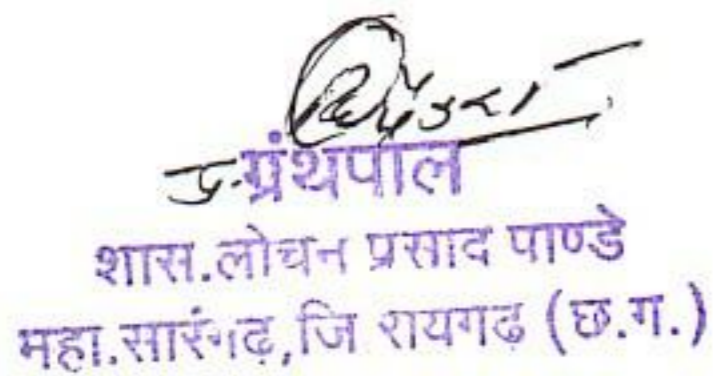 प्र. ग्रंथपाल
शास.लोचन प्रसाद पाण्डे
महा.सारंगढ़,जि रायगढ़ (छ.ग.)